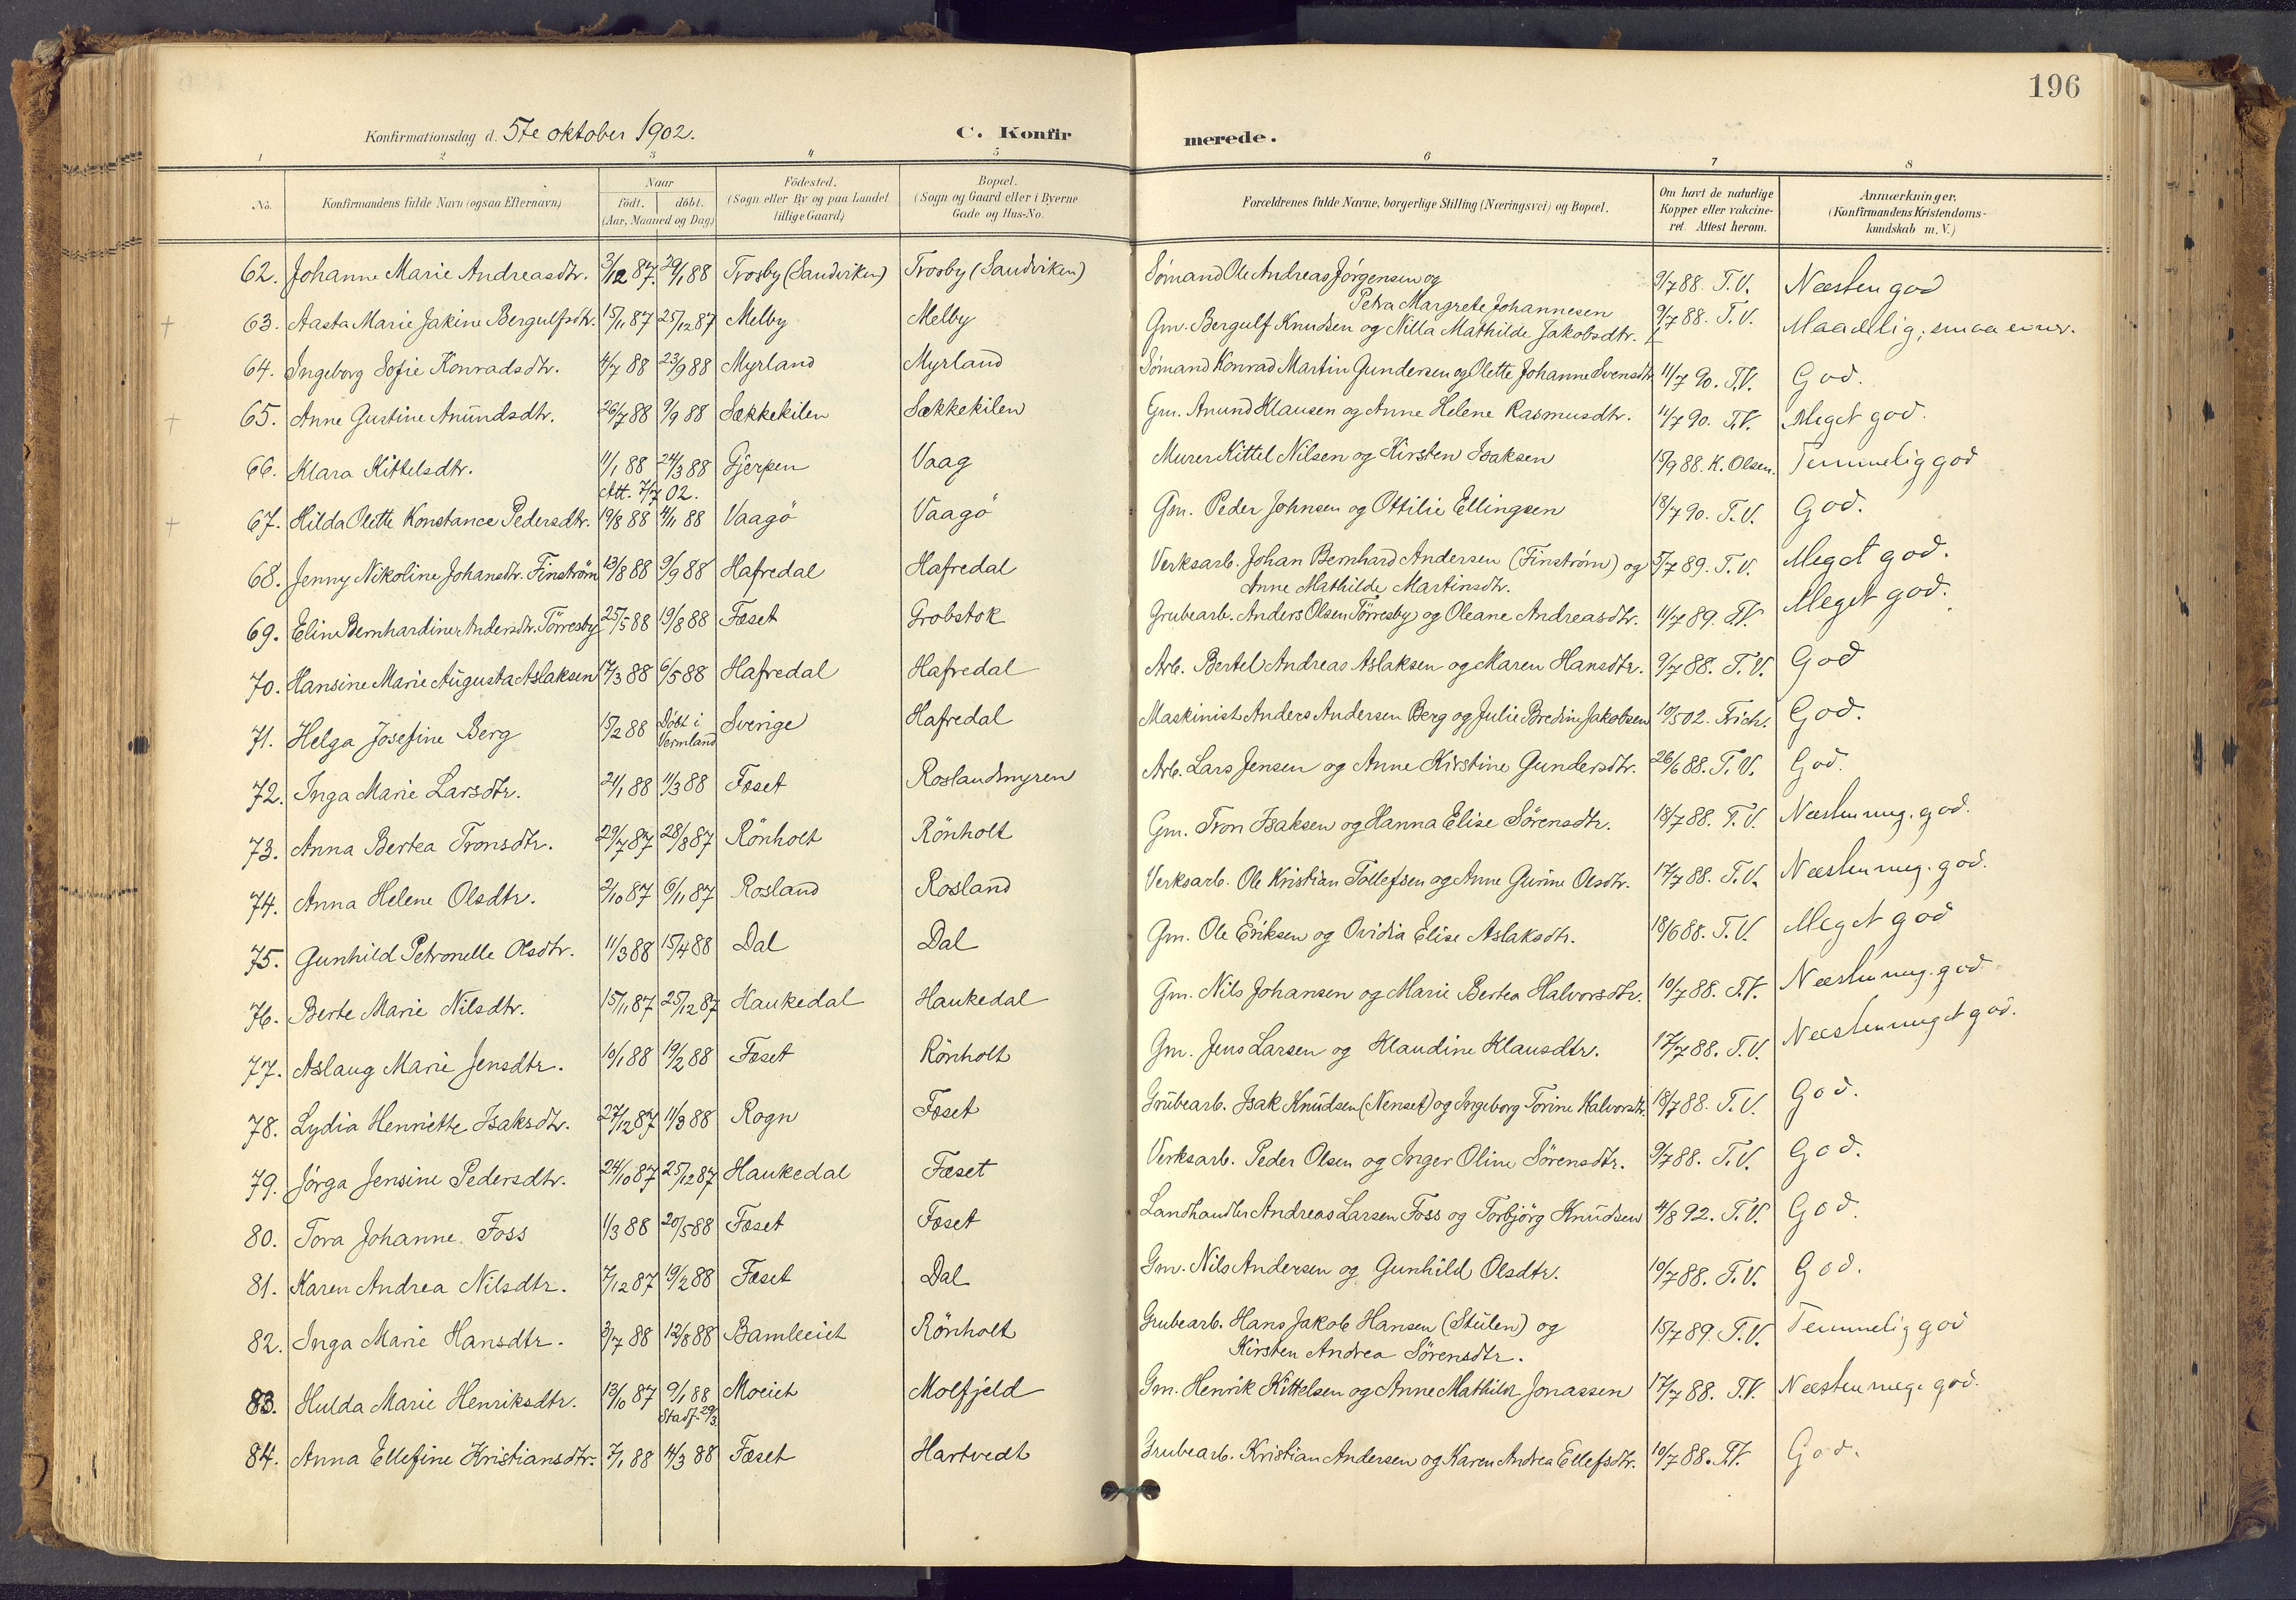 196
Konfirmationsdag d. 5te oktober 1902. C. Konfirmerede.
1 2 3 4 5 6 7 8
No. Konfirmandens fulde Navn (ogsaa Efternavn) Naar født. døbt. (Aar, Maaned og Dag) Födested. (Sogn eller By og paa Landet tillige Gaard) Bopæl. (Sogn og Gaard eller i Byerne Gade og Hus-No. Forældrenes fulde Navne, borgerlige Stilling (Næringsvei) og Bopæl. Om havt de naturlige Kopper eller vakcineret. Attest herom. Anmærkninger. (Konfirmandens Kristendomskundskab m. V.)
62. Johanne Marie Andreasdtr. 3/12 87. 29/1 88 Trosby (Sandviken) Trosby (Sandviken) Sømand Ole Andreas Jørgensen og Petra Margrete Johannesen 9/7 88. T.V. Næsten god
63. Aasta Marie Jakine Bergulfsdtr. 15/11 87 25/12 87 Melby Melby Gm. Bergulf Knudsen og Nilla Mathilde Jakobsdtr. 9/7 88. T.V. Maadelig; smaa evner.
64. Ingeborg Sofie Konradsdtr. 4/7 88 23/9 88 Myrland Myrland Sømand Konrad Martin Gundersen og Olette Johanne Svensdtr. 11/7 90. T.V. God.
65. Anne Gustine Anundsdtr. 26/7 88 9/9 88 Sækkekilen Sækkekilen Gm. Anund Klausen og Anne Helene Rasmusdtr. 11/7 90. T.V. Meget god.
66. Klara Kittelsdtr. 11/1 88 24/3 88 Gjerpen Vaag Murer Kittel Nilsen og Kirsten Isaksen 15/9 88. K. Olsen. Temmelig god
Att. 7/7 02.
67. Hilda Olette Konstance Pedersdtr. 19/8 88 4/11 88 Vaagö Vaagö Gm. Peder Johnsen og Ottilie Ellingsen 18/7 90. T.V. God.
68. Jenny Nikoline Johansdtr. Finström 13/8 88 9/9 88 Hafredal Hafredal Verksarb. Johan Bernhard Andersen (Finstrøm) og Anne Mathilde Martinsdtr. 5/7 89. T.V. Meget god.
69. Elin Bernhardine Andersdtr. Törresby 25/5 88 19/8 88 Fæset Grobstok Grubearb. Anders Olsen Törresby og Oleane Andreasdtr. 11/7 89. T.V. Meget god.
70. Hansine Marie Augusta Aslaksen 17/3 88 6/5 88 Hafredal Hafredal Arb. Bertel Andreas Aslaksen og Maren Hansdtr. 9/7 88. T.V. God
71. Helga Josefine Berg 15/2 88 Döbt i Vermland Sverige Hafredal Maskinist Anders Andersen Berg og Julie Bredine Jakobsen 10/5 02. Frich. God.
72. Inga Marie Larsdtr. 21/1 88 11/3 88 Fæset Roslandsmyren Arb. Lars Jensen og Anne Kirstine Gundersdtr. 26/6 88. T.V. God.
73. Anna Bertea Tronsdtr. 29/7 87 28/8 87 Rönholt Rönholt Gm. Tron Isaksen og Hanna Elise Sörensdtr. 18/7 88. T.V. Næsten meg. god.
74. Anna Helene Olsdtr. 2/10 87 6/11 87 Rosland Rosland Verksarb. Ole Kristian Tollefsen og Anne Gurine Olsdtr. 17/7 88. T.V. Næsten meg. god.
75. Gunhild Petronelle Olsdtr. 11/3 88 15/4 88 Dal Dal Gm. Ole Eriksen og Ovidia Elise Aslaksdtr. 18/6 88. T.V. Meget god
76. Berte Marie Nilsdtr. 15/11 87 25/12 87 Haukedal Haukedal Gm. Nils Johansen og Marie Bertea Halvorsdtr. 10/7 88. T.V. Næsten meg. god
77. Aslaug Marie Jensdtr. 10/1 88 19/2 88 Fæset Rönholt Gm. Jens Larsen og Klaudine Klausdtr. 17/7 88. T.V. Næsten meget god.
78. Lydia Henriette Isaksdtr. 27/12 87 11/3 88 Rogn Fæset Grubearb. Isak Knudsen (Nenset) og Ingeborg Torine Halvorsdtr. 18/7 88. T.V. God.
79. Jørga Jensine Pedersdtr. 24/10 87 25/12 87 Haukedal Fæset Verksarb. Peder Olsen og Inger Oline Sörensdtr. 9/7 88. T.V. God.
80. Tora Johanne Foss 1/3 88 20/5 88 Fæset Fæset Landhandler Andreas Larsen Foss og Torbjörg Knudsen 4/8 92. T.V. God.
81. Karen Andrea Nilsdtr. 7/12 87 19/2 88 Fæset Dal Gm. Nils Andersen og Gunhild Olsdtr. 10/7 88. T.V. God.
82. Inga Marie Hansdtr. 3/7 88 12/8 88 Bamleeiet Rönholt Grubearb. Hans Jakob Hansen (Stulen) og Kirsten Andrea Sörensdtr. 15/7 89. T.V. Temmelig god
83. Hulda Marie Henriksdtr. 13/10 87 9/1 88 Stadf. 29/3 Moeiet Molfjeld Gm. Henrik Kittelsen og Anne Mathilde Jonassen 17/7 88. T.V. Næsten meg. god.
84. Anna Ellefine Kristiansdtr. 7/1 88 4/3 88 Fæset Hartvedt Grubearb. Kristian Andersen og Karen Andrea Ellefsdtr. 10/7 88. T.V. God.